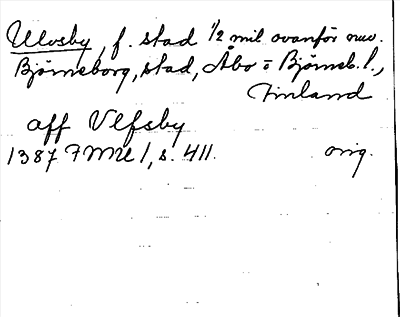 Ulvsby, f. stad 1/2 mil ovanför nuv.
Björneborg, stad, Åbo o Björneb. l.,
Finland
aff Vlfsby
1387 FMU 1, s. 411. orig.